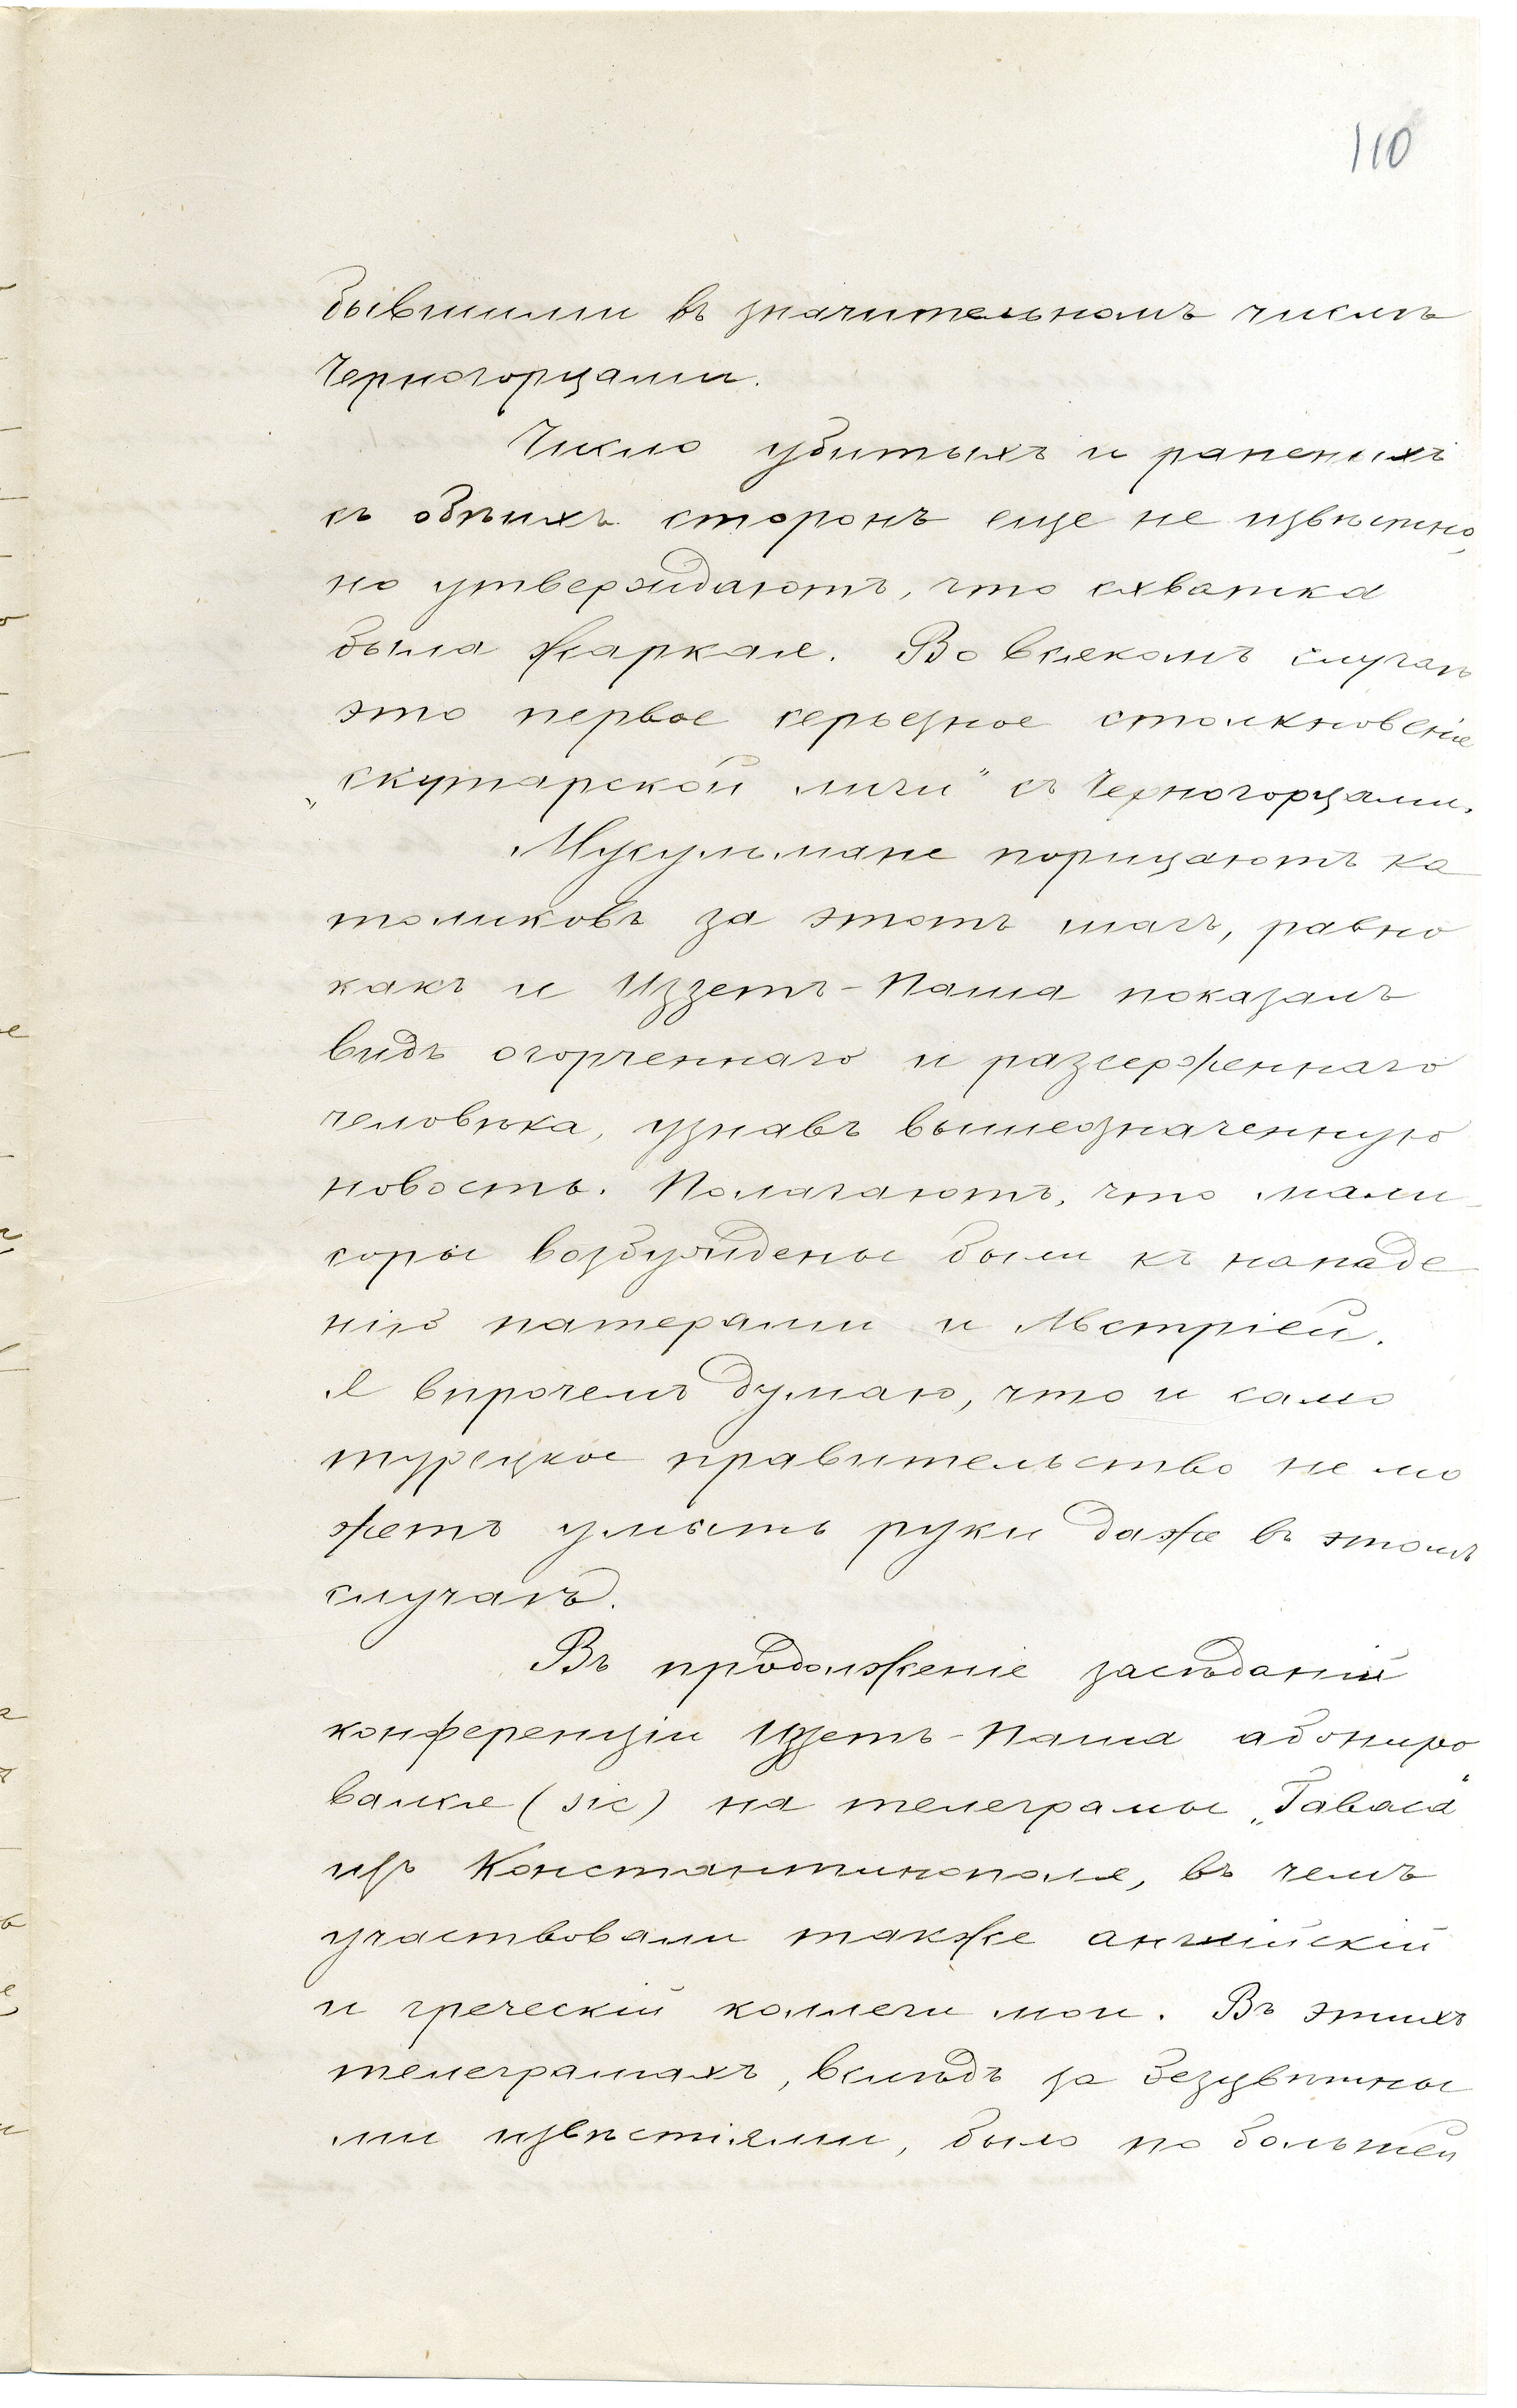 110
бывшими въ значительномъ числѣ
Черногорцами.
Число убитыхъ и раненыхъ
съ обѣихъ сторонъ еще не извѣстно,
но утверждаютъ, что схватка
была жаркая. Во всякомъ случаѣ
это первое серьезное столкновеніе
„скутарской лиги" съ Черногорцами.
Мусульмане порицаютъ ка
толиковъ за этотъ шагъ, равно
какъ и Иззетъ-Паша показалъ
видъ огорченнаго и разсерженнаго
человѣка, узнавъ вышеозначенную
новость. Полагаютъ, что мали-
соры возбуждены были къ нападе
нію патерами и Австріей.
Я впрочемъ думаю, что и само
турецкое правительство не мо
жетъ умыть руки даже въ этомъ
случаѣ.
Въ продолженіе засѣданій
конференціи Иззетъ-Паша абониро
вался (sic) на телеграмы „Гаваса"
изъ Константинополя, въ чемъ
участвовали также англійскій
и греческій коллеги мои. Въ этихъ
телеграмахъ, вслѣдъ за безцвѣтны
ми извѣстіями, было по большей